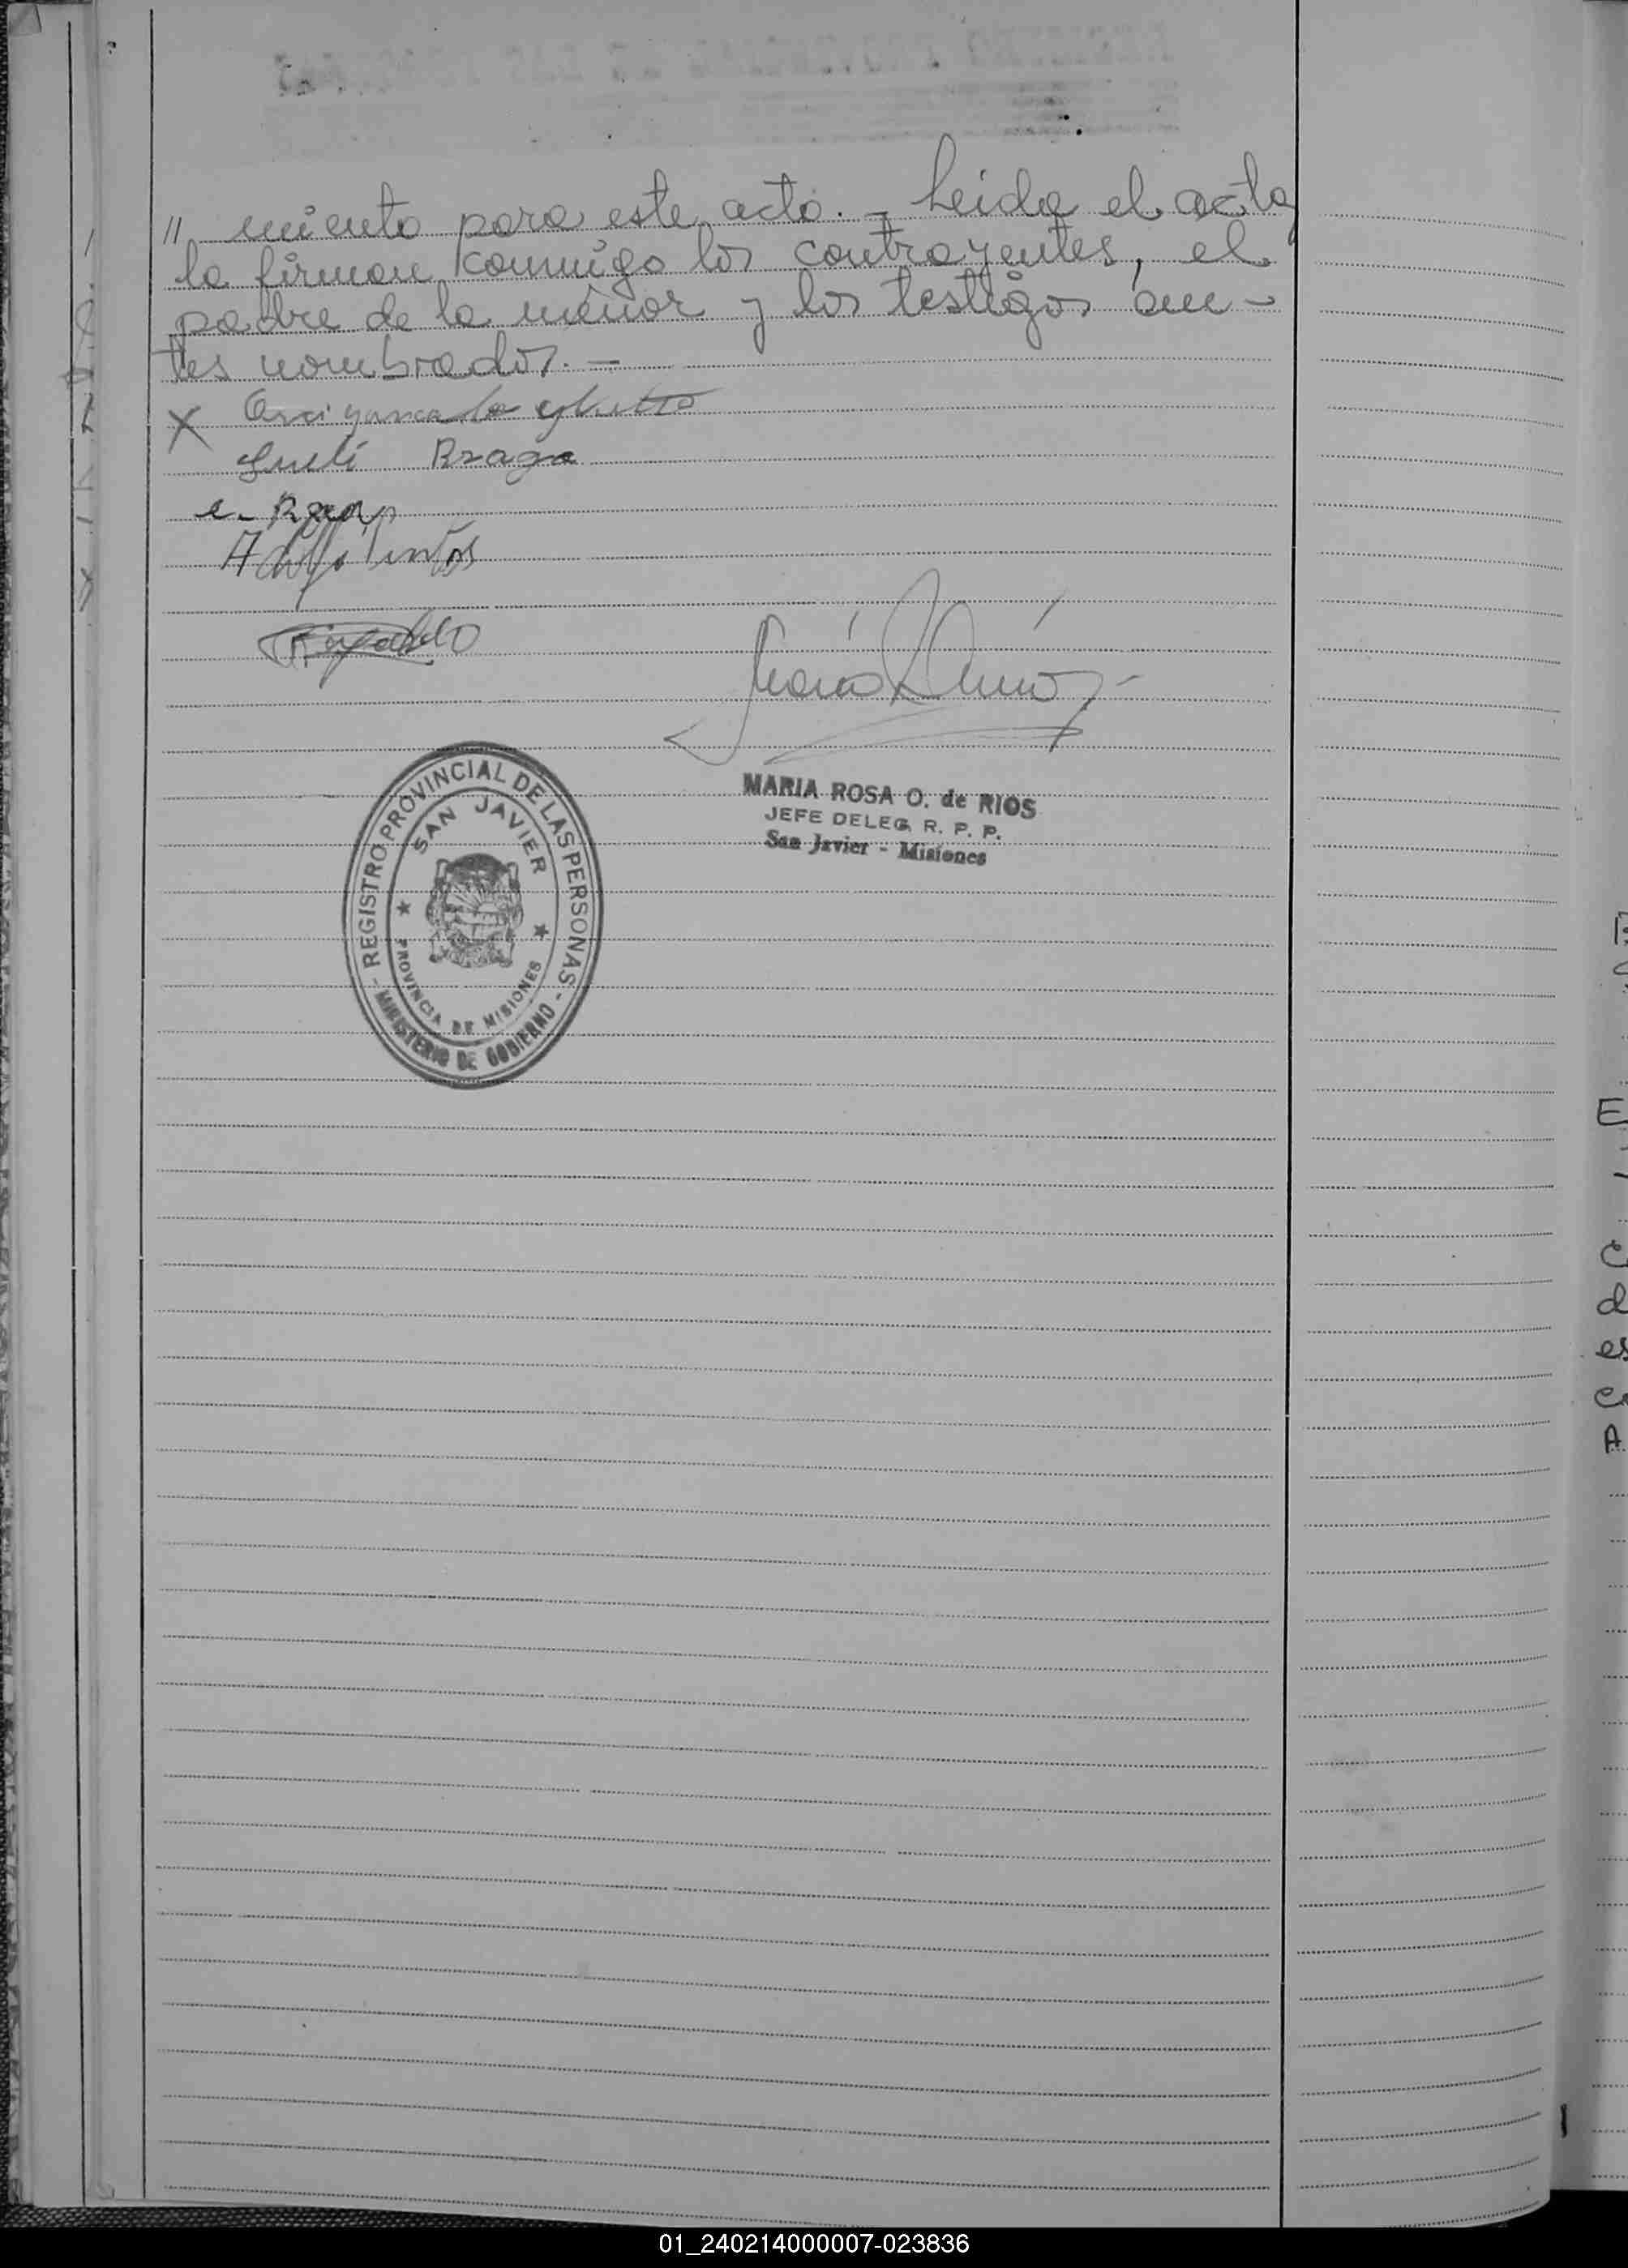 " miento para este acto. - Leida el acta
la firman conmigo los contrayentes, el
padre de la menor y los testigos an-
tes nombrados. -
X
Braga
MARIA ROSA O. de RIOS
JEFE DELEG. R. P. P.
San Javier - Misiones
- REGISTRO PROVINCIAL DE LAS PERSONAS -
MINISTERIO DE GOBIERNO
SAN JAVIER
PROVINCIA DE MISIONES
01_240214000007-023836